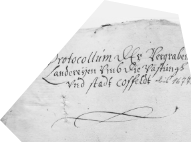 Protocollum Der Vorgraben
Landereyen Umb die Vastungs
Und Stadt Coßfeldt